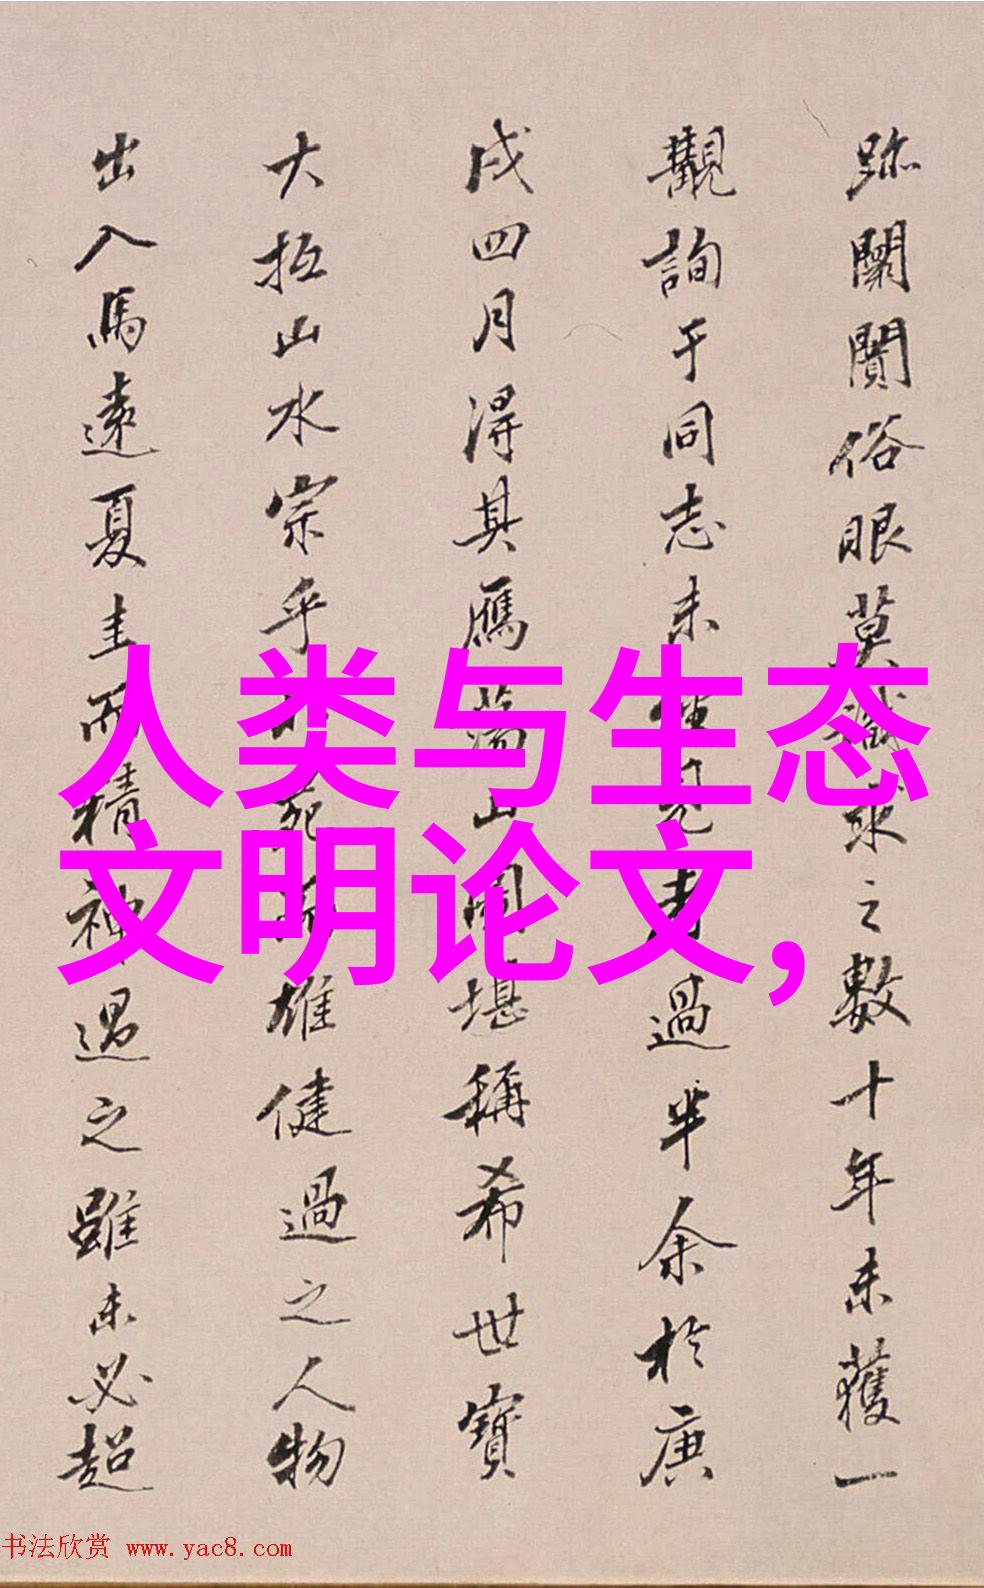 跡闤闠俗眼莫識求之數十年未獲一
觀詢于同志未見者過半余於庚
戌四月得其鴈蕩山圖堪稱希世寶
大抵山水宗乎苑而雄健過之人物
出入馬遠夏圭而精神過之雖未必超
人类与生态
文明论文,
书法欣赏 www.yac8.com